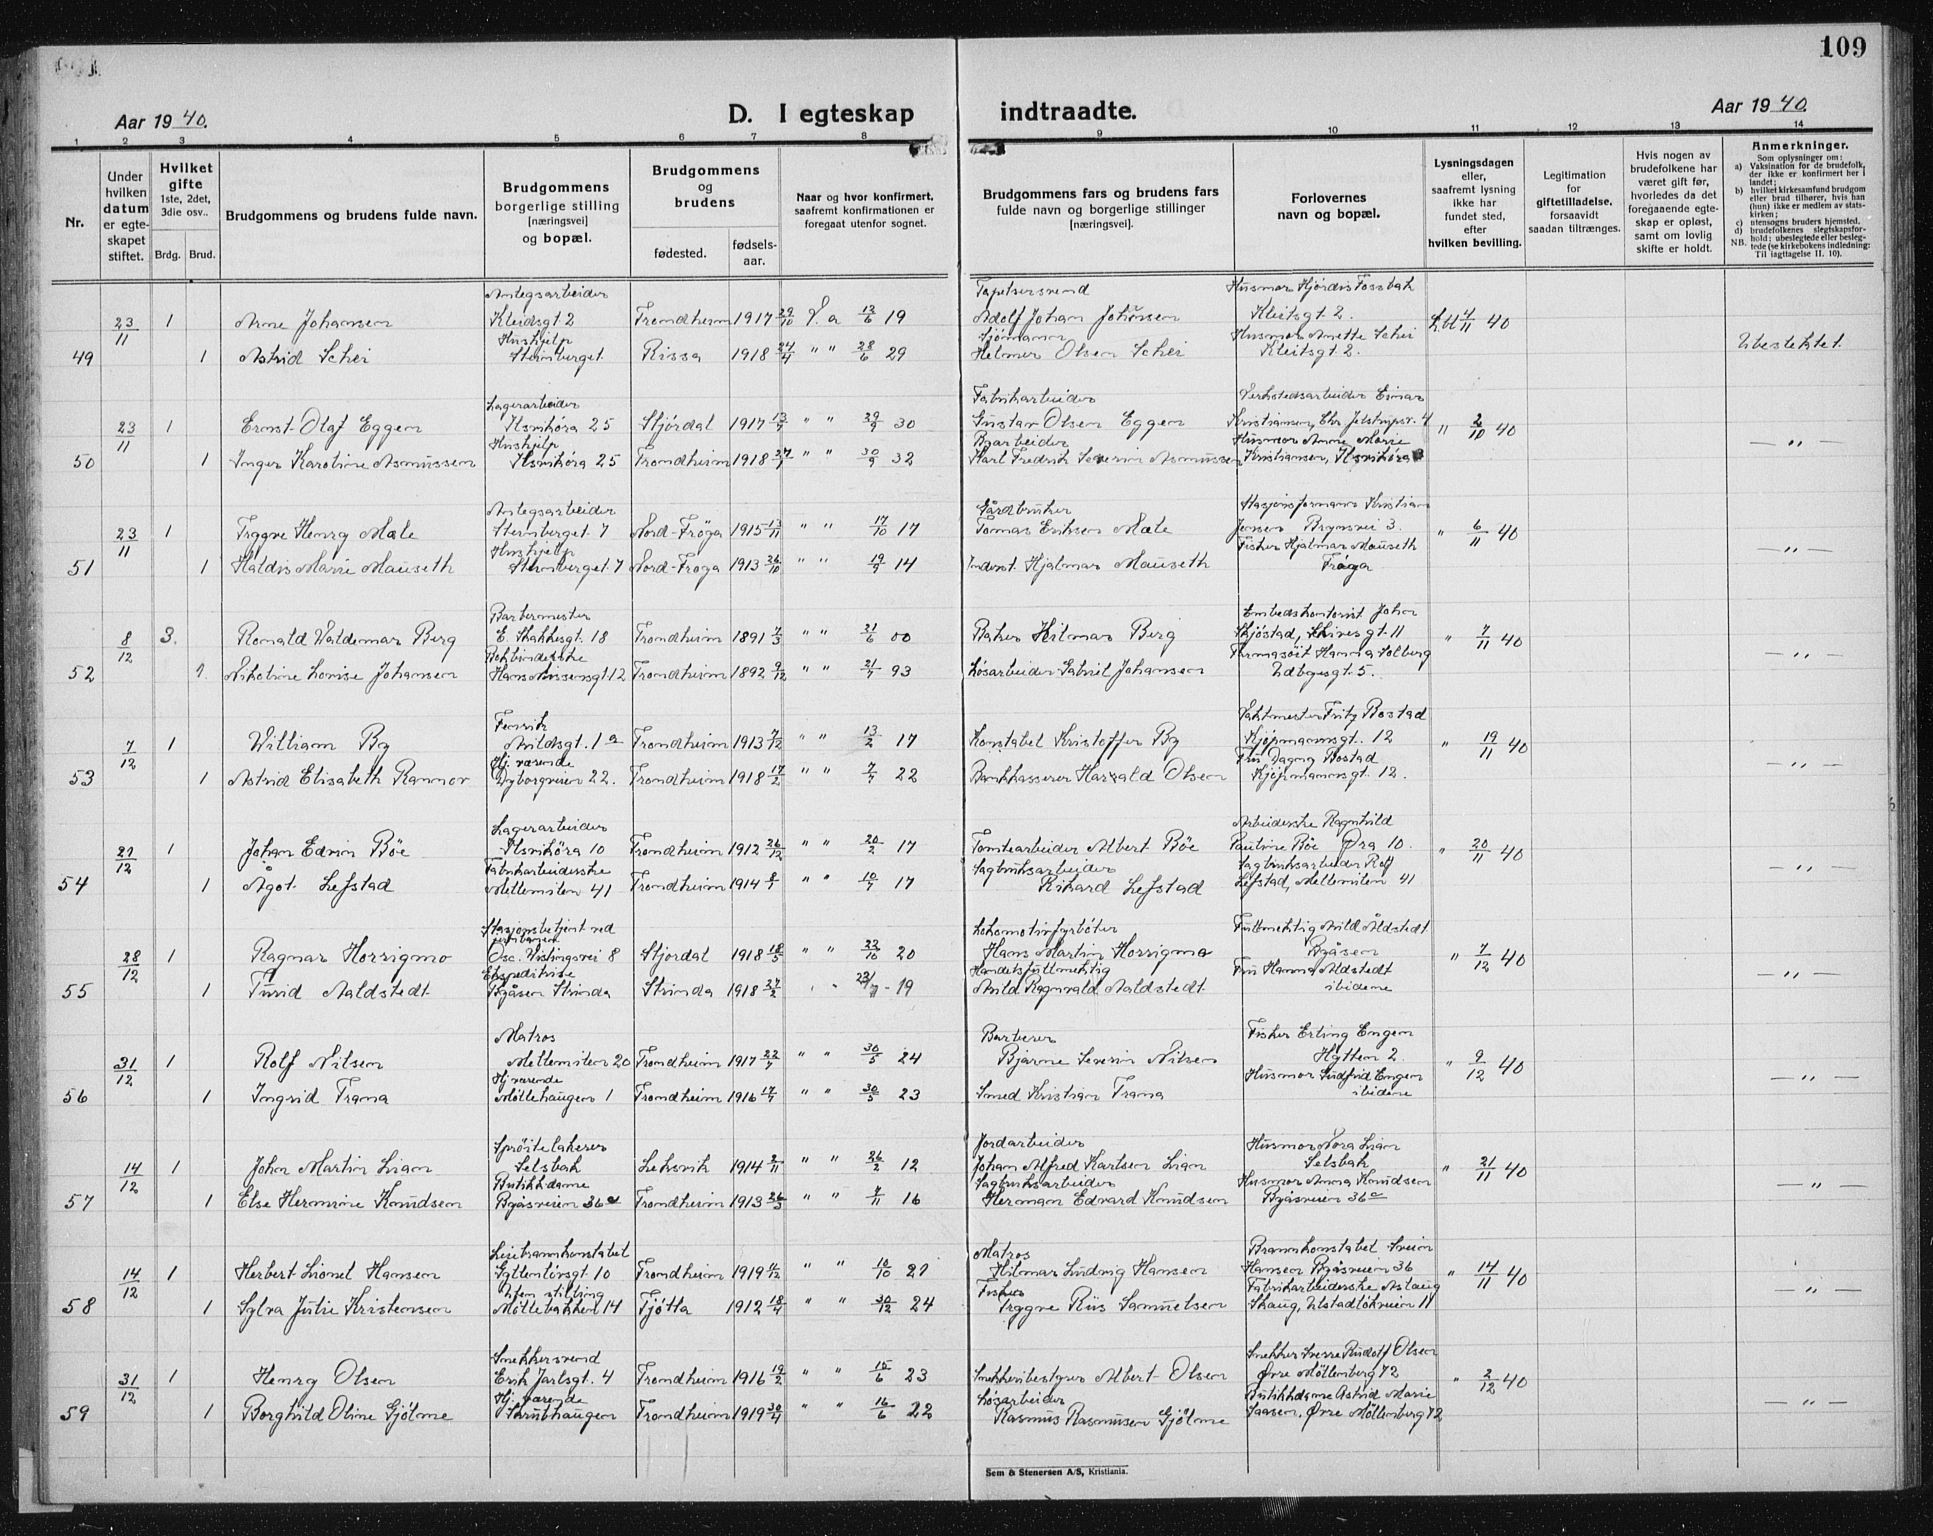 109
Aar 1940.
D. I egteskap indtraadte.
Aar 1940.
1 2 3 4 5 6 7 8 9 10 11 12 13 14
Nr.
Under hvilken datum er egteskapet stiftet.
Hvilket gifte 1ste, 2det, 3die osv..
Brdg. Brud.
Brudgommens og brudens fulde navn.
Brudgommens borgerlige stilling [næringsvei] og bopæl.
Brudgommens og brudens
fødested. fødselsaar.
Naar og hvor konfirmert, saafremt konfirmationen er foregaat utenfor sognet.
Brudgommens fars og brudens fars fulde navn og borgerlige stillinger [næringsvei].
Forlovernes navn og bopæl.
Lysningsdagen eller, saafremt lysning ikke har fundet sted, efter hvilken bevilling.
Legitimation for giftetilladelse, forsaavidt saadan tiltrænges.
Hvis nogen av brudefolkene har været gift før, hvorledes da det foregaaende egteskap er opløst, samt om lovlig skifte er holdt.
Anmerkninger.
Som oplysninger om:
a) Vaksination for de brudefolk, der ikke er konfirmert her i landet;
b) hvilket kirkesamfund brudgom eller brud tilhører, hvis han (hun) ikke er medlem av statskirken;
c) utensogns bruders hjemsted.
d) brudefolkenes slegtskapsforhold; ubeslegtede eller beslegtede (se kirkebokens indledning:
NB. Til iagttagelse II. 10).
Anlegsarbeider Tapetsersvend Husmor Hjørdis Fossbak
23/11 1 Arne Johansen Kleistgt 2 Trondheim 1917 29/10 V. a 12/6 19 Adolf Johan Johansen Kleistgt 2. 4/11 40
Hushjelp Sjømann Husmor Anette Schei
49 1 Astrid Schei Steinberget Rissa 1918 24/4 " " 28/6 29 Helmer Olsen Schei Kleistgt 2. Ubeslektet.
Lagerarbeider Fabrikarbeider Verkstedsarbeider Einar
23/11 1 Ernst Olaf Eggen Ilsvikøra 25 Stjørdal 1917 13/7 " " 29/9 30 Gustav Olsen Eggen Kristiansen, Chr. Jelstrupsv. 4 " 2/10 40
Hushjelp Byarbeider Husmor Anne Marie
50 1 Inger Karoline Asmussen Ilsvikøra 25 Trondheim 1918 27/7 " " 30/9 32 Karl Fredrik Severin Asmussen Kristiansen, Ilsvikøra — " —
Anlegsarbeider Gårdbruker Stasjonsformann Kristian
23/11 1 Trygve Henry Måle Steinberget 7 Nord-Frøya 1915 13/11 " " 17/10 17 Tomas Eriksen Måle Jensen Brynsvei 3. " 6/11 40
Hushjelp Fisker Hjalmar Mauseth
51 1 Haldis Marie Mauseth Steinberget 7 Nord-Frøya 1913 26/10 " " 19/9 14 Hjalmar Mauseth Frøya — " —
Barbermester John
8/12 3. Ronald Valdemar Berg E Skakkesgt. 18 Trondheim 1891 7/3 " " 21/6 00 Baker Hilmar Berg Skjøstad, gt. 11 " 7/11 40
Hanna Solberg
52 1. Nikoline Lovise Johansen Hans Nissensgt. 12 Trondheim 1892 9/12 " " 21/7 93 Løsarbeider Gabriel Johansen gt. 5. — " —
Fenrik Vaktmester Fritz Bostad
7/12 1 William By Arildsgt. 1 a Trondheim 1913 7/12 " " 13/2 17 Konstabel Kristoffer By Kjøpmannsgt. 12 " 19/11 40
Hj. værende Fru Dagny Bostad
53 1 Astrid Elisabeth Rannor Dyborgveien 22. Trondheim 1918 17/2 " " 7/7 22 Bankkasserer Harald Olsen Kjøpmannsgt. 12. — " —
Lagerarbeider Arbeiderske Ragnhild
21/12 1 Johan Edvin Bøe Ilsvikøra 10 Trondheim 1912 26/12 " " 20/2 17 Tomtearbeider Albert Bøe Pauline Bøe Øra 10. " 20/11 40
Fabrikarbeiderske Sagbruksarbeider Sagbruksarbeider Rolf
54 1 Ågot Lefstad Mellemilen 41 Trondheim 1914 8/1 " " 10/7 17 Rikard Lefstad Lefstad, Mellemilen 41 — " —
Stasjonsbetjent ved jernbanen Lokomotivfyrbøter Fullmektig Arild Åldstedt
28/12 1 Ragnar Horrigmo Osc. Wistingsvei 8 Stjørdal 1918 18/5 " " 22/10 20 Hans Martin Horrigmo Byåsen " 7/12 40
Ekspeditrise Handelsfullmektig Fru Hanna Aldstedt
55 1 Turid Aaldstedt Byåsen Strinda Strinda 1918 27/2 " " 23/7 19 Arild Ragnvald Aaldstedt ibidene — " —
Matros Barberer Fisker Erling Engen
31/12 1 Rolf Nilsen Mellemilen 20 Trondheim 1917 22/7 " " 30/5 24 Bjarne Severin Nilsen Hytten 2. " 9/12 40
Hj. værende Husmor Gudfrid Engen
56 1 Ingrid Trana Møllehaugen 1 Trondheim 1916 17/7 " " 30/5 23 Smed Kristian Trana ibidene — " —
Sprøitelakerer Jordarbeider Husmor Nora Lian
14/12 1 John Martin Lian Selsbak Leksvik 1914 2/11 " " 26/2 12 Johan Alfred Karlsen Lian Selsbak " 21/11 40
Butikkdame Sagbruksarbeider Husmor Anna Knudsen
57 1 Else Hermine Knudsen Byåsveien 36 a Trondheim 1913 26/3 " " 7/11 16 Herman Edvard Knudsen Byåsveien 36 a — " —
Matros Brannkonstabel Svein
14/12 1 Herbert Lionel Hansen Gyllenløvsgt. 10 Trondheim 1919 " " 10/10 21 Hilmar Ludvig Hansen Hansen Byåsveien 36 " 14/11 40
Uten stilling Fisker Fabrikarbeiderske Aslaug
58 1 Sylva Julie Kristensen Møllebakken 14 Tjøtta 1912 18/4 " " 30/12 24 Trygve Riis Samuelsen Skaug, Ulstadløkveien 11 — " —
Snekkersvend Snekker Sverre Rudolf Olsen
31/12 1 Henry Olsen Erik Jarlsgt. 4 Trondheim 1916 19/2 " " 15/6 23 Snekkerbestyrer Albert Olsen Øvre Møllenberg 72 " 2/12 40
Hj. værende Løsarbeider Butikkdame Astrid Marie
59 1 Borghild Oline Gjølme Skrubbhaugen Trondheim 1919 30/4 " " 16/6 22 Rasmus Rasmussen Gjølme Saasen, Øvre Møllenberg 72 — " —
Sem & Stenersen A/S, Kristiania.